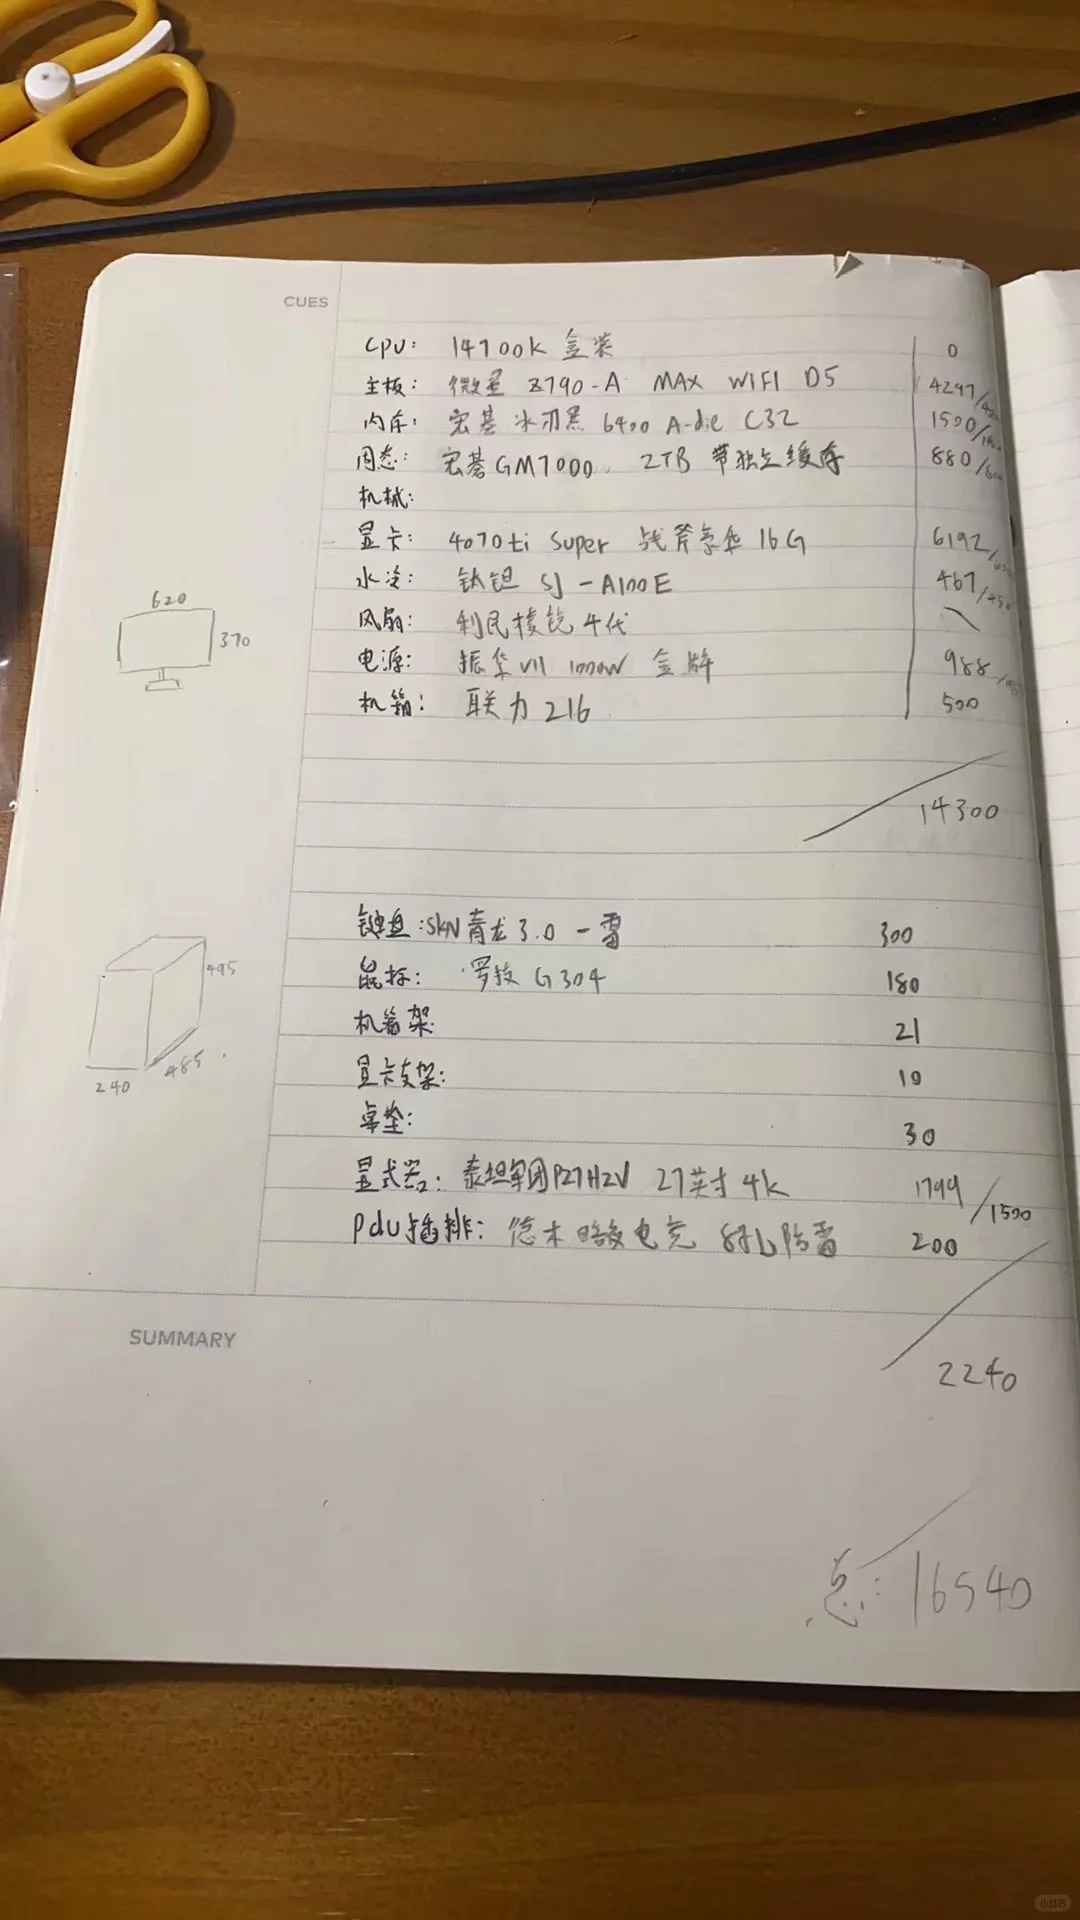 CUES
CPU: 14700K 盒装 0
主板: 微星 Z790-A MAX WIFI D5 4297/
内存: 宏碁 冰刃黑 6400 A-die C32 1500/
固态: 宏碁GM7000 2TB 带独立缓存 880/
机械:
显卡: 4070ti Super 战斧豪华 16G 6192/
水冷: 钛钽 SJ-A100E 467/450
620
风扇: 利民棱镜4代
370
电源: 振华VII 1000W 金牌 988
机箱: 联力 216 500
14300
键盘:SKN青龙3.0 一雷 300
495
鼠标: 罗技 G304 180
机箱架 21
485
240
显卡支架: 10
桌垫: 30
显式器: 泰坦军团P27H2V 27英寸 4k 1799/1500
Pdu插排: 德木 电竞 8孔防雷 200
SUMMARY
2240
总: 16540
小红书